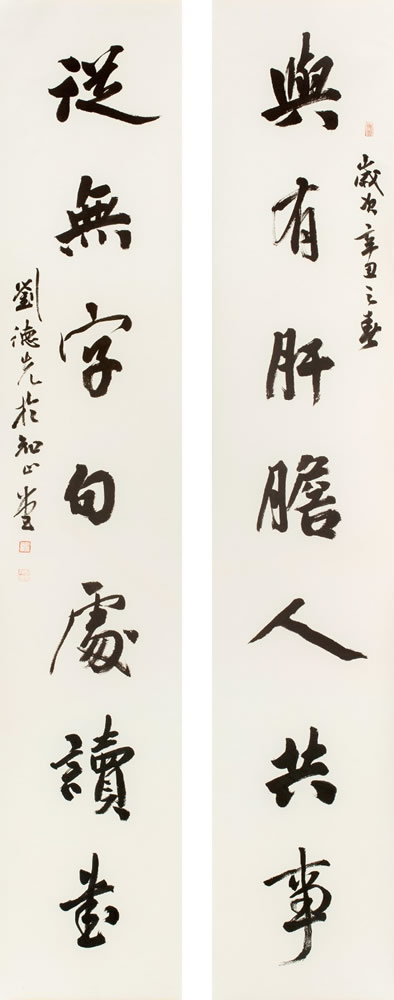 歲次辛丑之春
與有肝膽人共事
從無字句處讀書
劉德光於堂